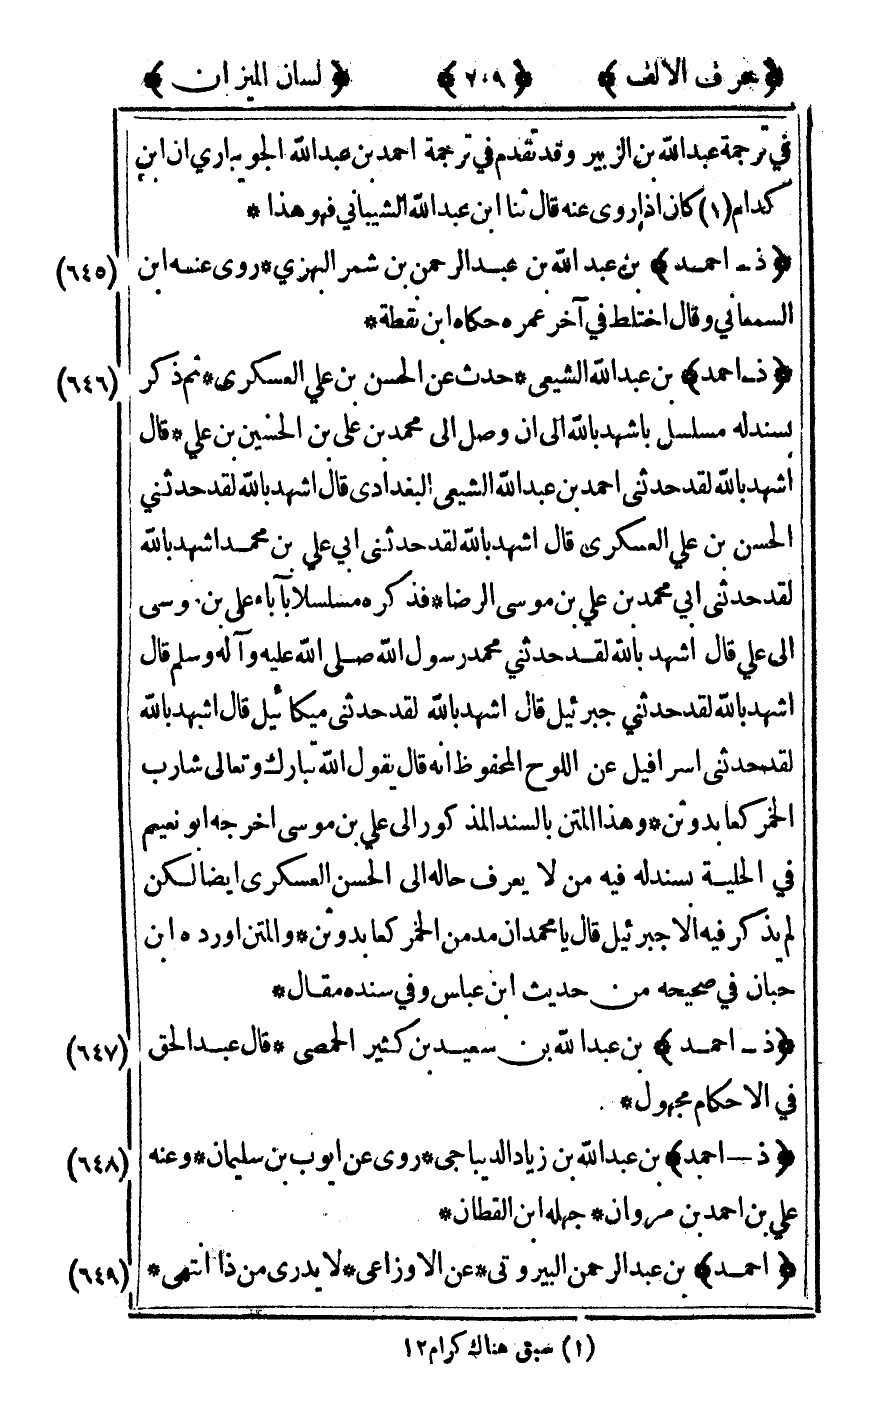 ﴿ حرف الالف ﴾ ﴿ ٢٠٩ ﴾ ﴿ لسان الميزان ﴾
في ترجمة عبدالله بن الزبير وقد تقدم في ترجمة احمد بن عبدالله الجويباري ان ابن
كدام (١) كان اذا روى عنه قال ثنا ابن عبدالله الشيباني فهو هذا *
﴿ ذ ـ احمد ﴾ بن عبد الله بن عبد الرحمن بن شمر البهزي * روى عنه ابن (٦٤٥)
السمعاني وقال اختلط في آخر عمره حكاه ابن نقطة *
﴿ ذ ـ احمد ﴾ بن عبدالله الشيعى * حدث عن الحسن بن علي العسكرى * ثم ذكر (٦٤٦)
بسند له مسلسل باشهد بالله الى ان وصل الى محمد بن على بن الحسين بن علي * قال
اشهد بالله لقد حدثنى احمد بن عبدالله الشيعى البغدادى قال اشهد بالله لقد حدثني
الحسن بن علي العسكرى قال اشهد بالله لقد حدثنى ابي علي بن محمد اشهد بالله
لقد حدثنى ابي محمد بن علي بن موسى الرضا * فذكره مسلسلا بآباء علي بن موسى
الى علي قال اشهد بالله لقد حدثني محمد رسول الله صلى الله عليه وآله وسلم قال
اشهد بالله لقد حدثني جبرئيل قال اشهد بالله لقد حدثنى ميكائيل قال اشهد بالله
لقد حدثنى اسرافيل عن اللوح المحفوظ انه قال يقول الله تبارك وتعالى شارب
الخمر كعابد وثن * وهذا المتن بالسند المذكور الى علي بن موسى اخرجه ابو نعيم
في الحلية بسند له فيه من لا يعرف حاله الى الحسن العسكرى ايضا لكن
لم يذكر فيه الا جبرئيل قال يا محمد ان مدمن الخمر كعابد وثن * والمتن اورده ابن
حبان في صحيحه من حديث ابن عباس وفي سنده مقال *
﴿ ذ ـ احمد ﴾ بن عبد الله بن سعيد بن كثير الحمصى * قال عبد الحق (٦٤٧)
في الاحكام مجهول *
﴿ ذ ـ احمد ﴾ بن عبدالله بن زياد الديباجى * روى عن ايوب بن سليمان * وعنه (٦٤٨)
علي بن احمد بن مروان * جهله ابن القطان *
﴿ احمد ﴾ بن عبد الرحمن البيروتى * عن الاوزاعى * لا يدرى من ذا انتهى * (٦٤٩)
(١) سبق هناك كرام ١٢